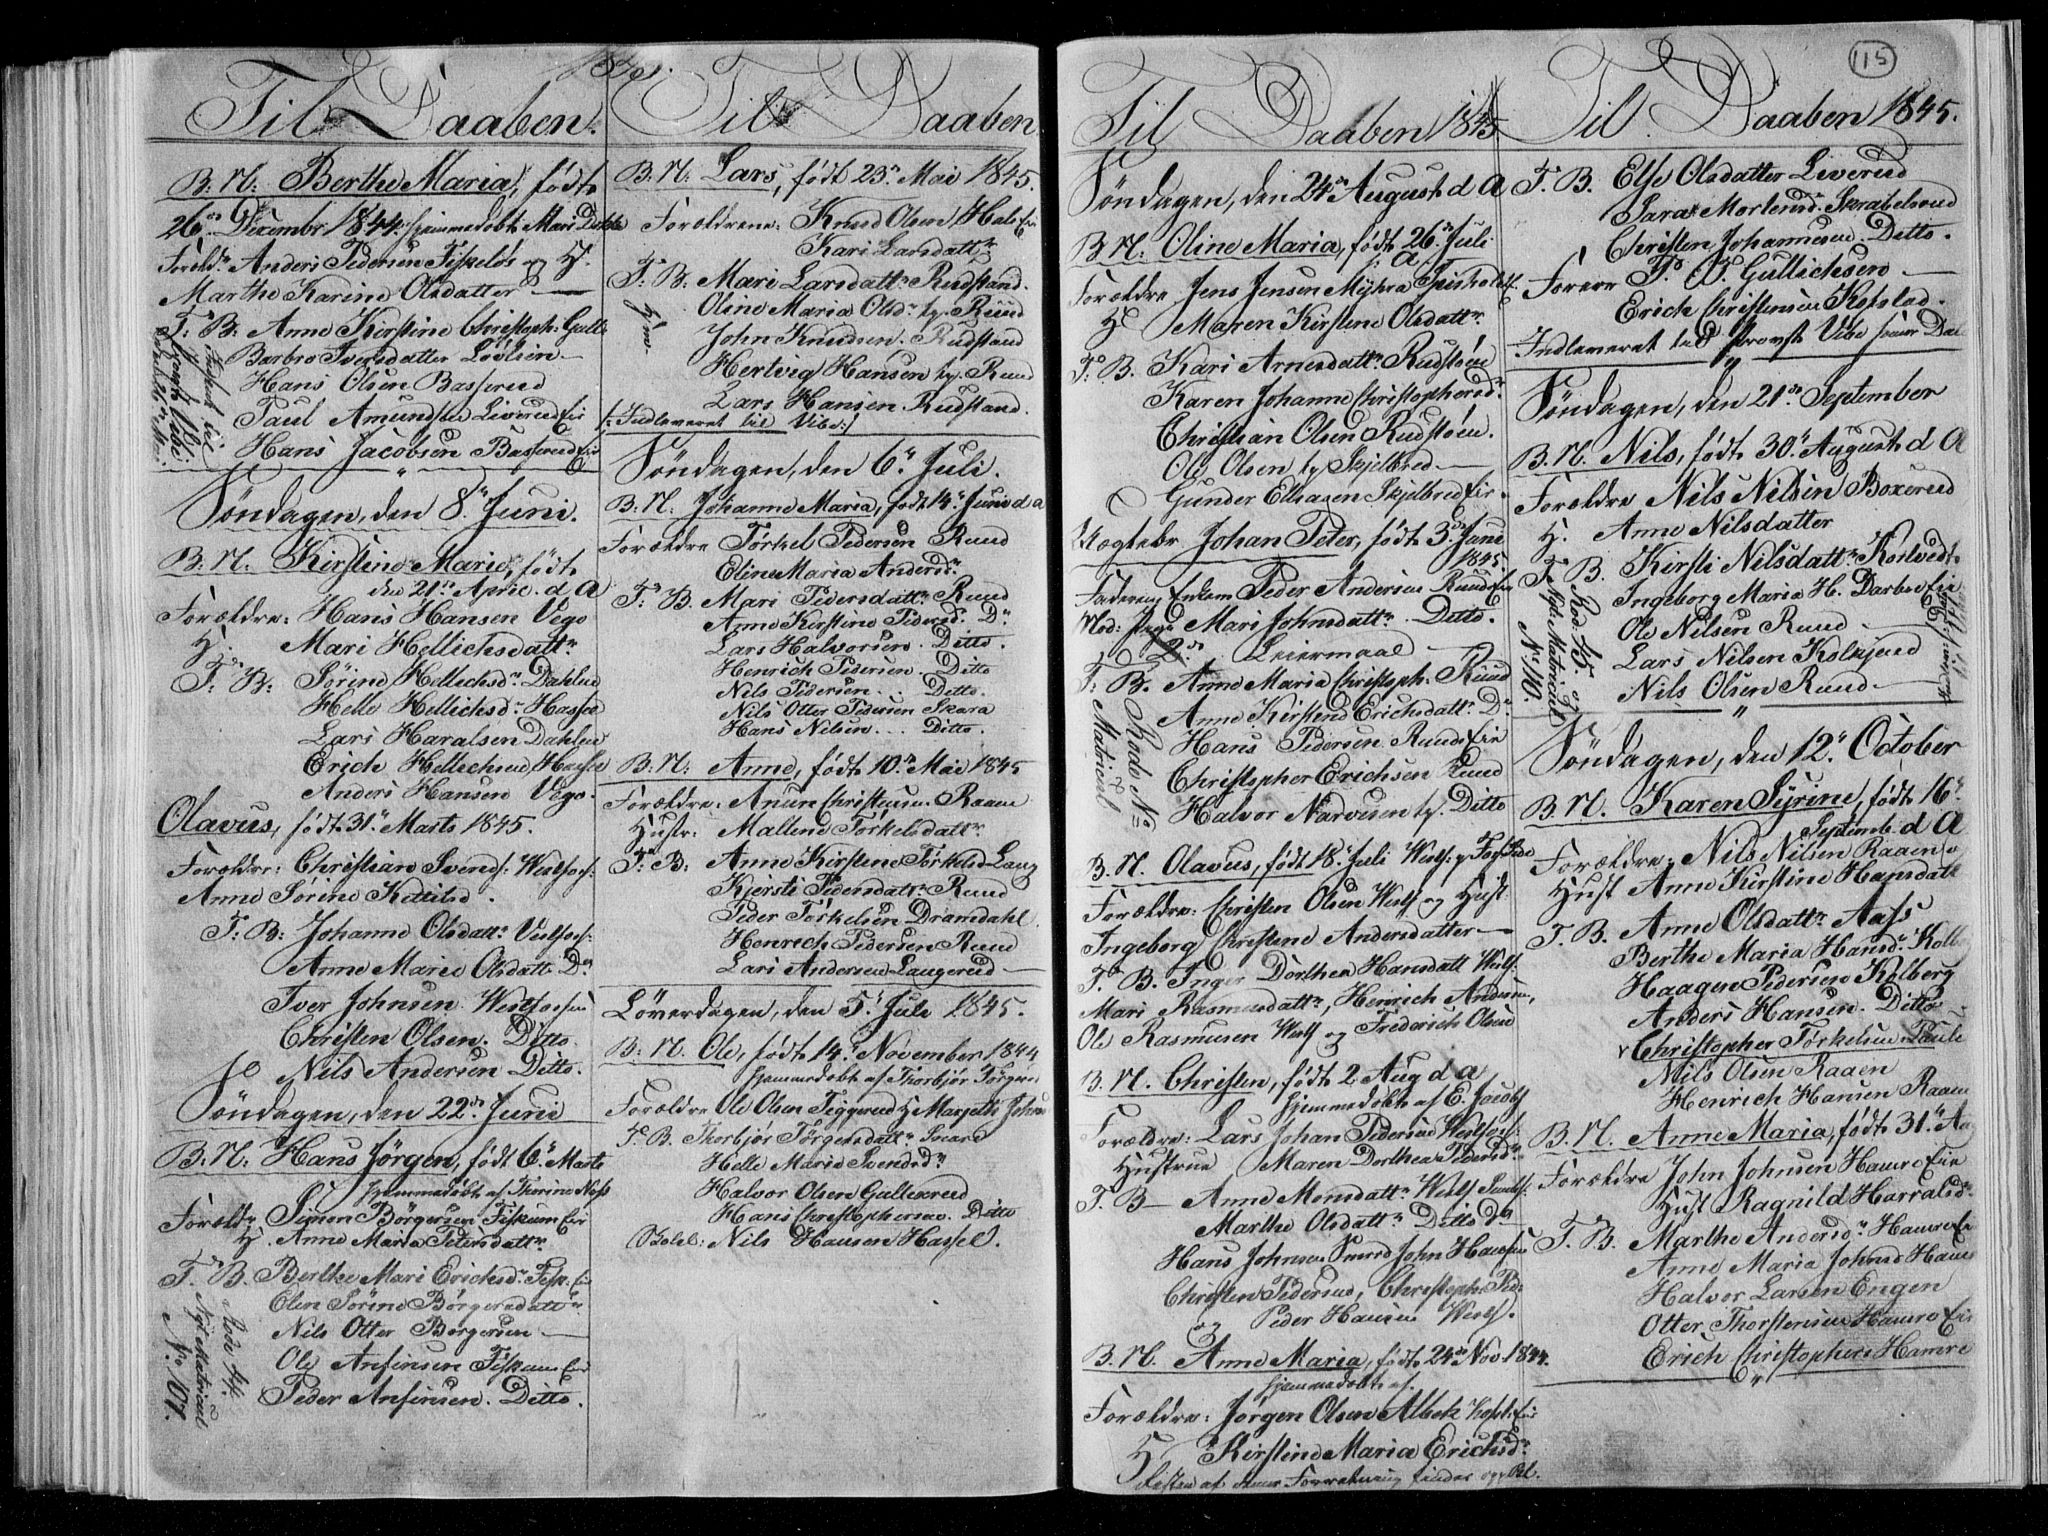 Til Daaben.
B: N: Berthe Maria, födt
26de December 1844. hjemmedöbt Mari
Foreld: Anders Pedersen Fiskelös og H.
Marthe Karine Olsdatter
F: B: Anne Kirstine Christoph:
Barbro Iversdatter Lövlien
Hans Olsen Basserud
Paul Amundsen Liverud Eie
Hans Jacobsen Basserud Eie
Indlevert til
Provst Vibe
Söndagen, den 8. Juni.
B. N. Kirstine Marie, födt
den 21de April d A
Forældre: Hans Hansen Vego
H. Mari Hellichsdatt
F: B: Sörine Hellichsd: Dahlen
Helle Hellichsd:
Lars Haralsen Dahlen
Erich Hellichsen
Anders Hansen Vego.
Olavus, födt 31. Marts 1845.
Forældr: Christian Svends: Westfos:
Anne Sörine Kittilsd.
F: B: Johanne Olsdatt: Vestfos:
Anne Marie Olsdatt. D:
Iver Johnsen Westfossen
Christen Olsen. Ditto.
Nils Andersen Ditto.
Söndagen, den 22de Juni
B: N: Hans Jörgen, födt 6. Marts
hjemmedöbt af Thorine
Foreld: Simon Börgersen Fiskum Eie
H. Anne Maria Petersdatt:
F. B. Berthe Mari Erichsd: Fisk. Eie
Olea Sörine Börgersdatt:
Nils Otter Börgersen
Ole Anfinsen Fiskum Eie
Peder Anfinsen. Ditto.
Rode 44.
Nye Matricul
No 107.
Til Daaben
B: N: Lars, födt 23de Mai 1845.
Forældrene: Knud Olsen Hals Eie
Kari Larsdatt:
F: B: Mari Larsdatt: Rudstand.
Oline Maria Olsd: Ruud
John Knudsen. Rudstand
Hertvig Hansen Ruud
Lars Hansen Rudstand.
/: Indleveret til Vibe :/
Söndagen, den 6. Juli.
B: N: Johanne Maria, födt 14. Juni d a
Forældre Törkel Pedersen Ruud
Eline Maria Andersd:
F: B. Mari Pedersdatt: Ruud
Anne Kirstine Pedersd. D:
Lars Halvorsen. Ditto.
Henrich Pedersen. Ditto
Nils Pedersen .. Ditto.
Nils Otter Pedersen Skara
Hans Nilsen .. Ditto.
B: N: Anne, födt 10de Mai 1845
Forældre: Anun Christensen Raaen
Hustr: Mallene Törkelsdatt:
F: B: Anne Kirstine Törkelsd Laug
Kjersti Pedersdatt: Ruud
Peder Törkelsen Dramdahl
Henrich Pedersen Ruud
Lars Andersen Laugerud
Löverdagen, den 5. Juli 1845.
B: N. Ole, födt 14. November 1844
hjemmedöbt af Thorbjör Törgersd
Forældre Ole Olsen H Marselie Johns
F. B. Thorbjör Törgersdatt: Svare
Helle Maria Svendsd:
Halvor Olsen Gulliksrud
Hans Christophersen. Ditto
Nils Hansen Hassel.
115
Til Daaben 1845
Söndagen, den 24de August d A
B N. Oline Maria, födt 26de Juli
d a
Forældre Jens Jensen Myhra
H Maren Kirstine Olsdatt:
F: B. Kari Arnesdatt: Rudstöen
Karen Johanne Christophersd:
Christian Olsen Rudstöen.
Ole Olsen Skjelbred
Gunder Ellsagen Skjelbred Eie
Uægtebr Johan Peter, födt 3de Juni
1845.
Faderen, Enkem Peder Andersen Ruud Eie
Mod: Mari Johnsdatt: Ditto.
2de Leiermaal
F: B. Anne Maria Christoph. Ruud
Anne Kirstine Erichsdatt: D:
Hans Pedersen Ruuds Eie
Christopher Erichsen Ruud
Halvor Narvesen Ditto
Rode No
Matricul
B. N. Olavus, födt 18. Juli
Forældre: Christen Olsen Westf og Hust
Ingeborg Christine Andersdatter
F. B. Inger Dorthea Hansdatt Westf:
Mari Rasmusdatt:, Henrich Andersen,
Ole Rasmussen Westf og Frederich Olsen
B. N. Christen, födt 2 Aug d a
hjemmedöbt af E. Jacobs
Forældre: Lars Johan Pedersen Westfos:
Hustrue Maren Dorthea Pedersd:
F. B Anne Monsdatt: Westf
Marthe Olsdatt: Ditto
Hans Johnsen John Hansen
Christen Pedersen, Christoph: Ped:
og Peder Hansen Westf.
B. N. Anne Maria, födt 24de Nov 1844.
hjemmedöbt af.
Forældre: Jörgen Olsen Albek
H Kirstine Maria Erichsd:
Resten af denne Forretning findes
Til Daaben 1845.
F. B. Else Olsdatter Liverud
Sara Mortensd: Skrabelsrud
Christen Johannesen Ditto.
Forere P. B. Gullichsen
Erich Christensen Kokslad.
Indleveret til Provst Vibe
Söndagen, den 21de September
B. N. Nils, födt 30. August d A
Forældre Nils Nilsen Boxerud
H. Anne Nilsdatter
F B. Kirsti Nilsdatt:
Ingeborg Maria H. Darbo Eie
Ole Nilsen Ruud
Lars Nilsen Kolsjord
Nils Olsen Ruud
Rode 45.
Nye Matricul
No 10.
Söndagen, den 12. October
B. N. Karen Syrine, födt 16.
Septemb. d A
Forældre: Nils Nilsen Raaen
Hust Anne Kirstine Hansdatt
F. B. Anne Olsdatt: Aass
Berthe Maria Hansd: Kolb
Haagen Pedersen Kolberg
Anders Hansen. Ditto
Christopher Törkelsen
Nils Olsen Raaen
Henrich Hansen Raaen
B. N. Anne Maria, födt 31. Au
Forældre John Johnsen Hamre Eie
Hust Ragnild Harralsd:
F. B. Marthe Andersd: Hamre Ei
Anne Maria Johnsd Hamr
Halvor Larsen Engen
Otter Thorstensen Hamre Eie
Erich Christophers Hamre